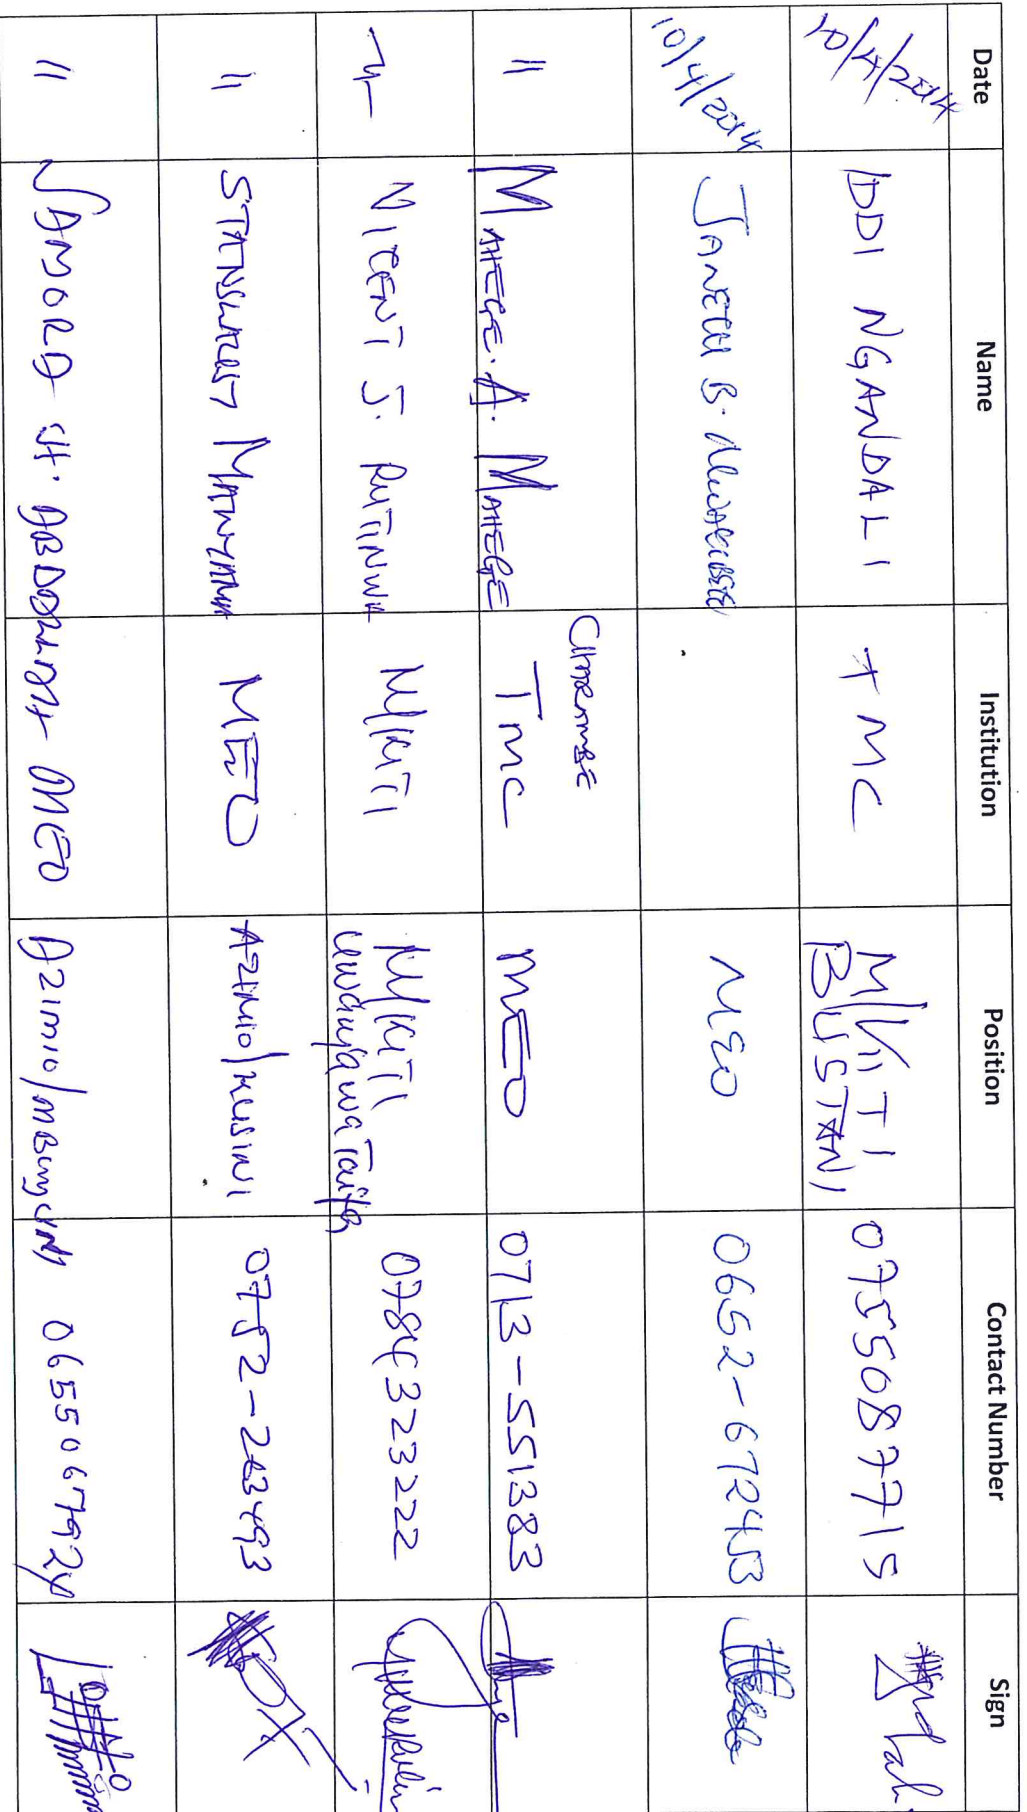 Date Name Institution Position Contact Number Sign
10/4/2014 IDDI NGANDALI TMC M/KITI BUSTANI 0755087715
10/4/2014 JANETH B. MEO 0652-672453
" MAHEGE. A. MAHEGE TMC MEO 0713-551383
NICENT J. RUTINWA M/KITI M/KITI 0784323222
" STANSLAUS MEO AZIMIO/KUSINI 0752-263493
" SAMORA H. ABDALLAH MEO AZIMIO/MBUYUNI 0655067924